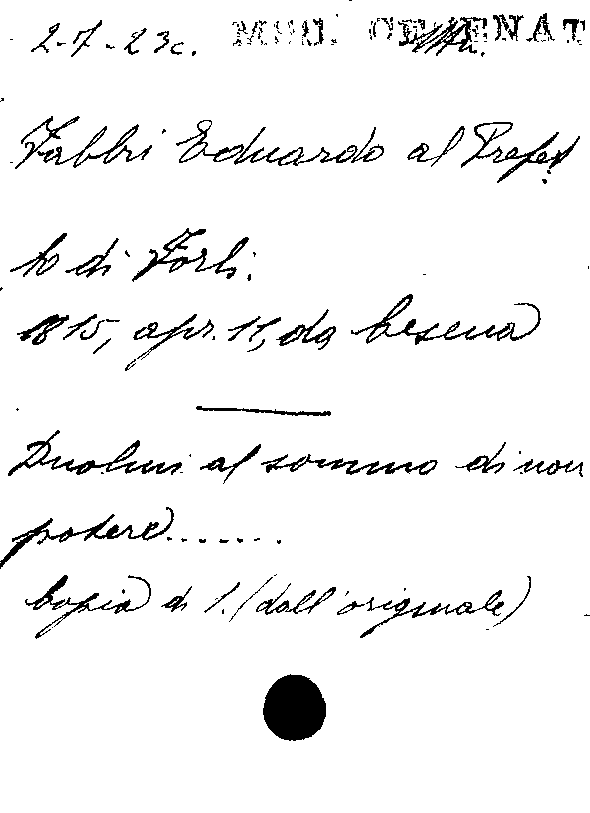 2-7-23c. MSC. CESENAT
Fabbri Eduardo al Prefet
to di Forlì.
1815, apr. 11, da Cesena
Duolmi al sommo di non
potere.......
Copia di S. (dall'originale)